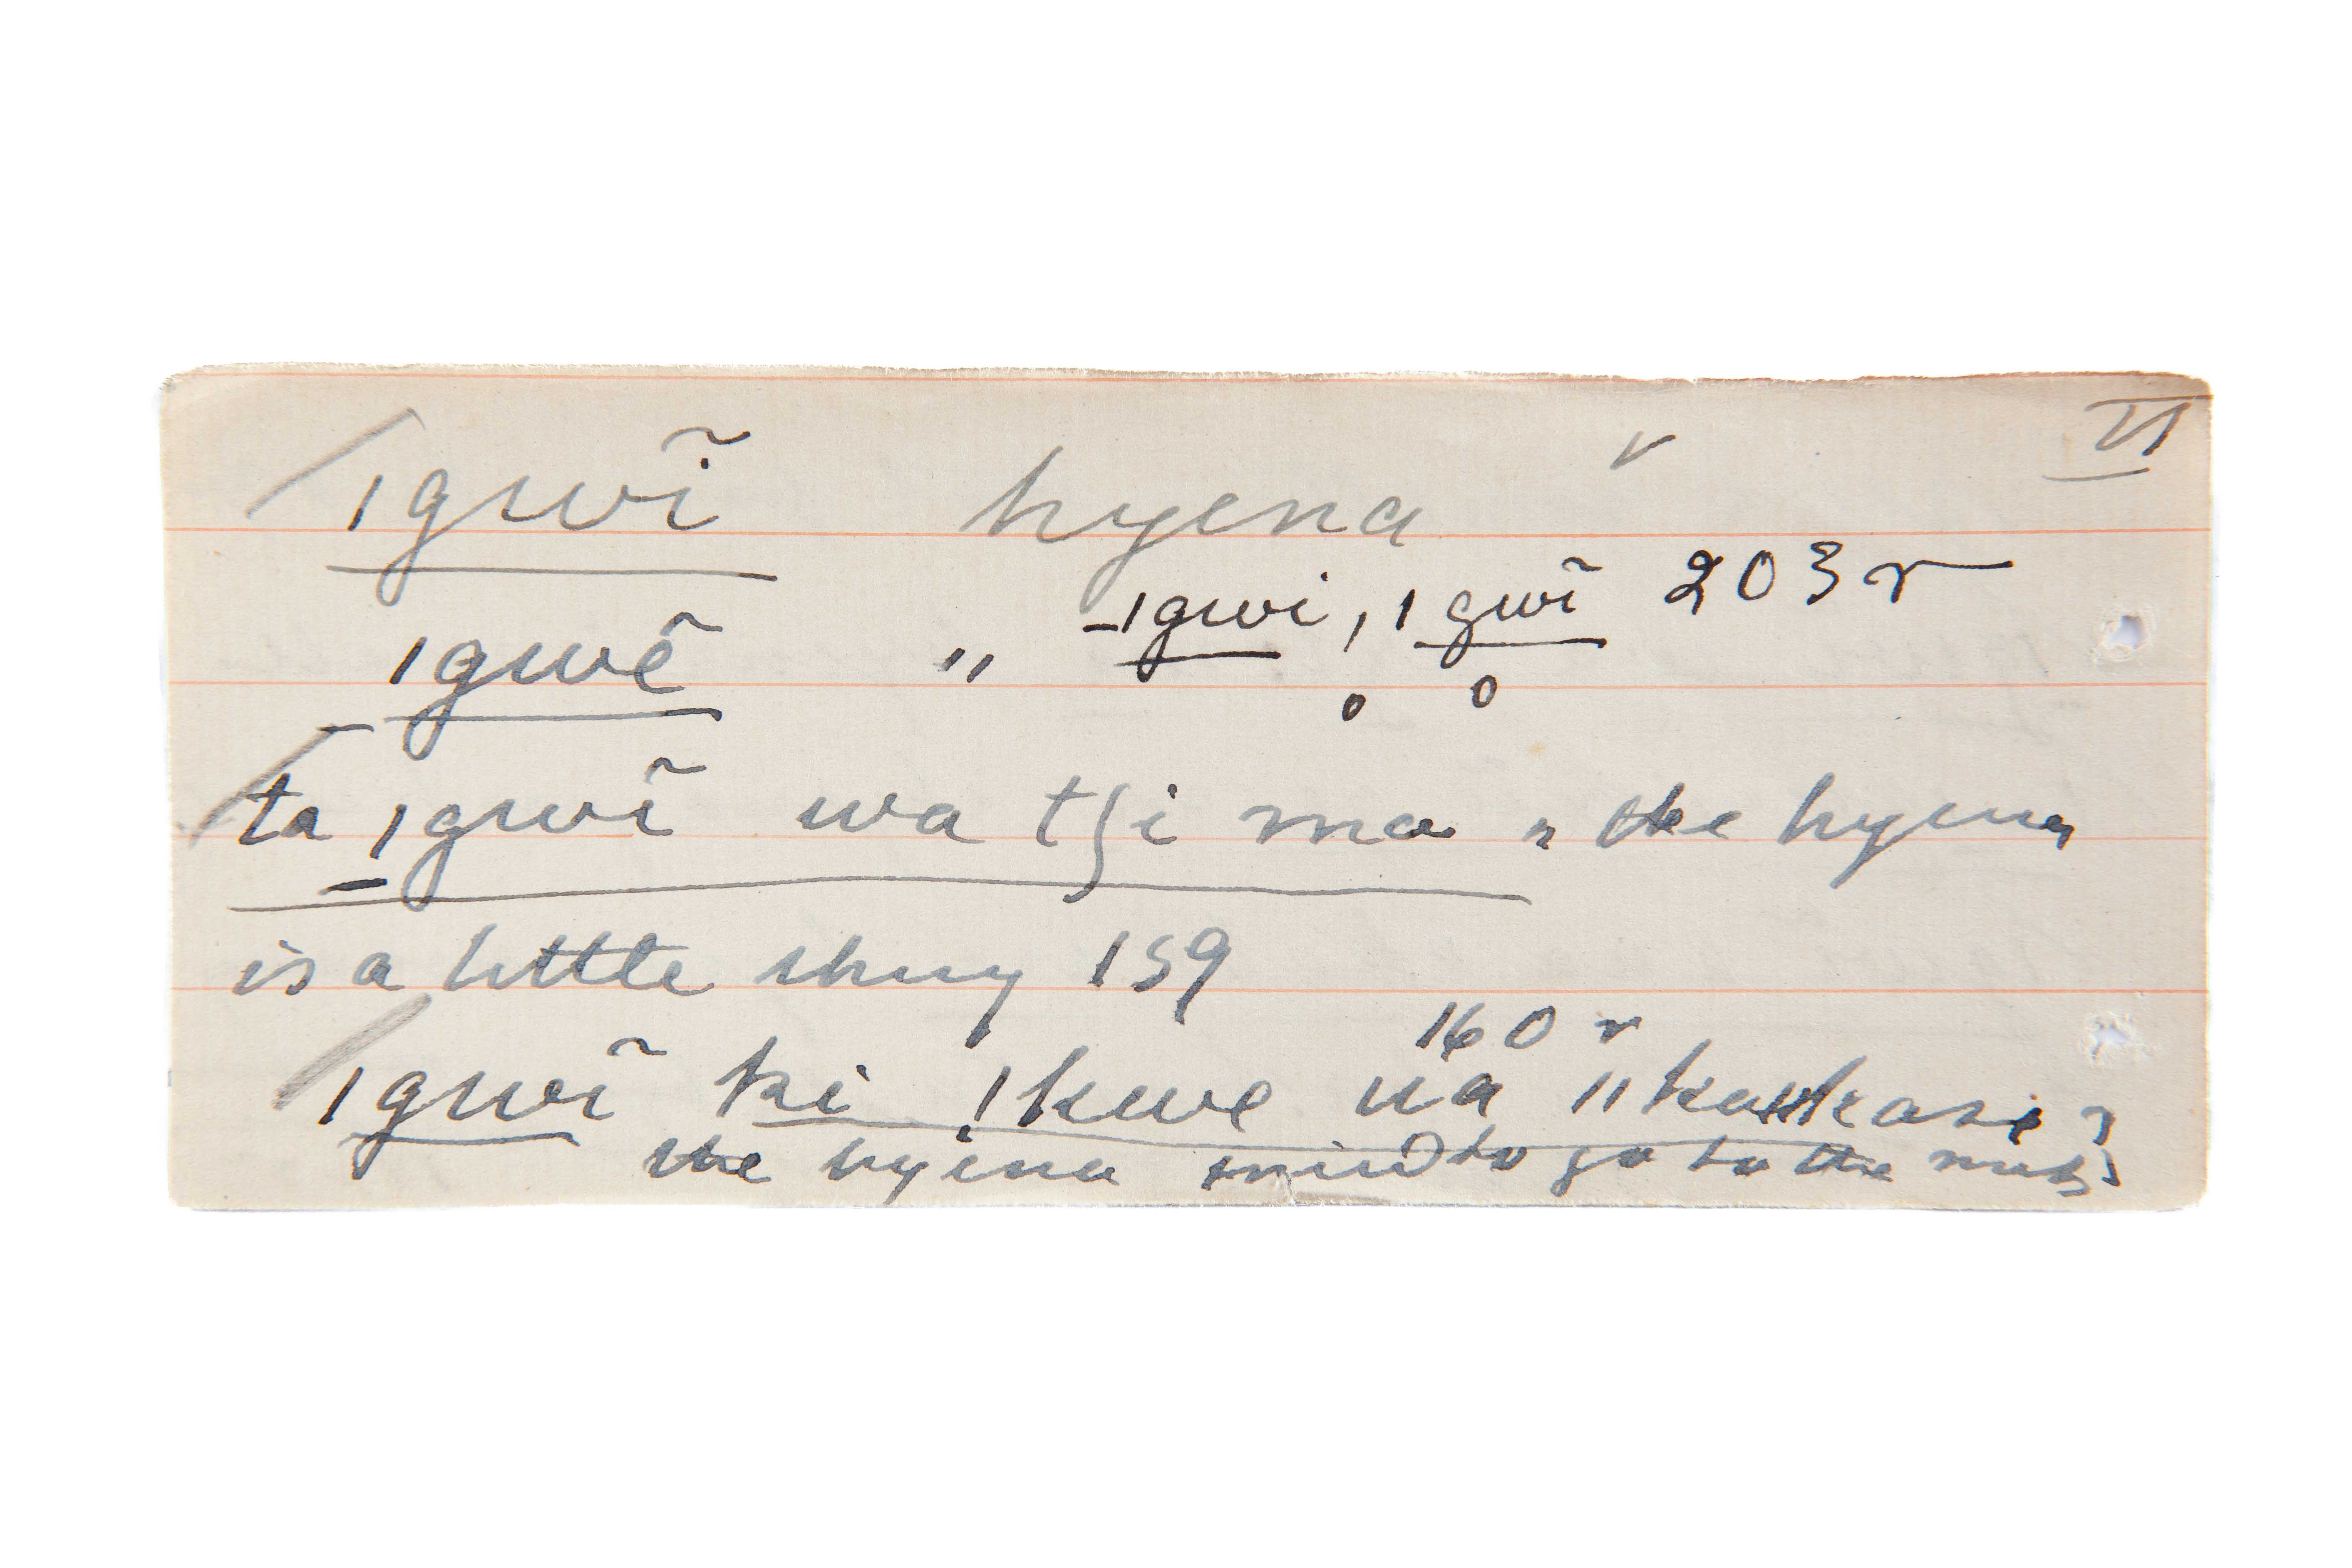 VI
ǀgwĩ hyena
ǀgwẽ " -ǀgwi, ǀgwĩ 203 r
ta ǀgwĩ wa tʃi ma " the hyena
is a little thing 159
160 r
ǀgwĩ ki ǃkwe ua ǁkauǁkasi
the hyena to go to the